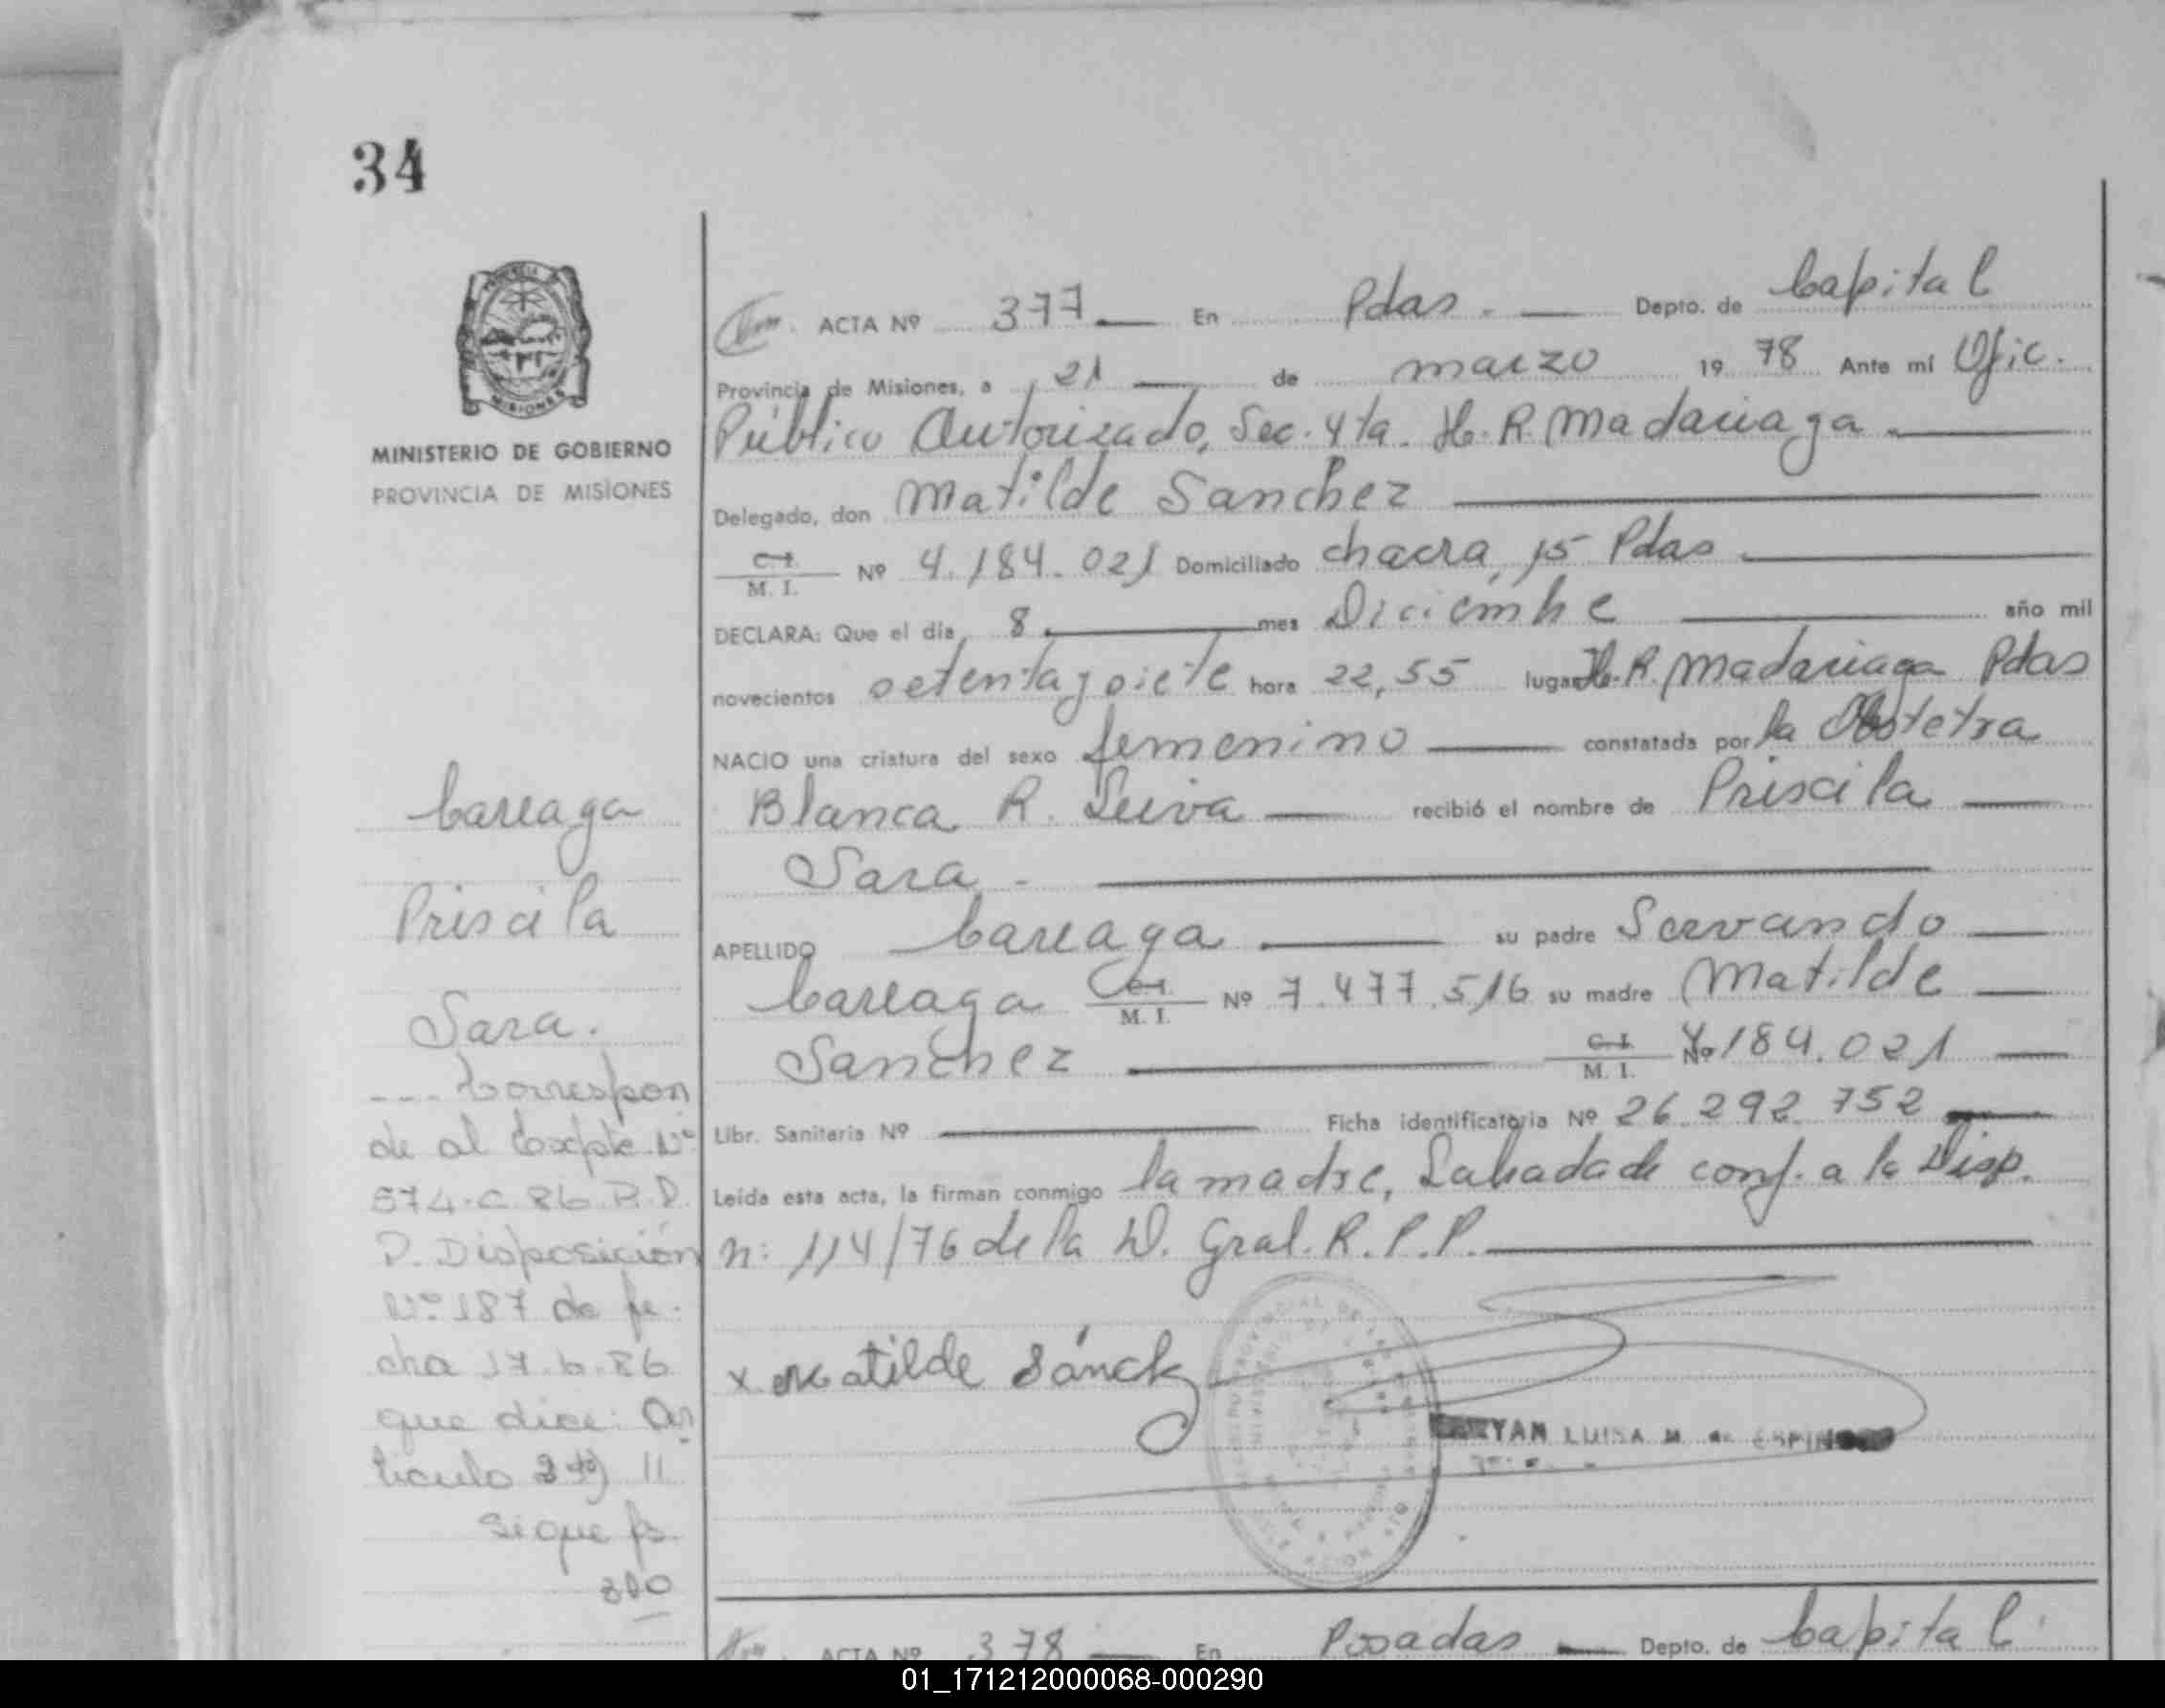 34
MINISTERIO DE GOBIERNO
PROVINCIA DE MISIONES
ACTA Nº 377 En Pdas. Depto. de Capital
Provincia de Misiones, a 21 de marzo 19 78 Ante mí Ofic.
Público Autorizado, Sec. 4ta. H. R. Madariaga
Delegado, don Matilde Sanchez
C.I. M. I. Nº 4.184.021 Domiciliado chacra 15 Pdas
DECLARA: Que el día 8 mes Diciembre año mil
novecientos setenta y siete hora 22,55 lugar H. R. Madariaga Pdas
NACIO una criatura del sexo femenino constatada por la Obstetra
Blanca R. Leiva recibió el nombre de Priscila
Sara.
APELLIDO Careaga su padre Servando
Careaga C.I. M. I. Nº 7.477.516 su madre Matilde
Sanchez C.I. M. I. Nº 4.184.021
Libr. Sanitaria Nº Ficha identificatoria Nº 26.292.752
Leída esta acta, la firman conmigo la madre, conf. a la Disp.
n: 114/76 de la D. Gral. R. P. P.
x Matilde Sánch
LUISA M. de ESPIN
Careaga
Priscila
Sara.
--- Correspon
de al Expte Nº
574-C-86 R.P.
P. Disposición
Nº 187 de fe-
cha 17.6.86
que dice: Ar
tículo 2º) 11
sigue fs.
ACTA Nº 378 En Posadas Depto. de Capital
01_171212000068-000290